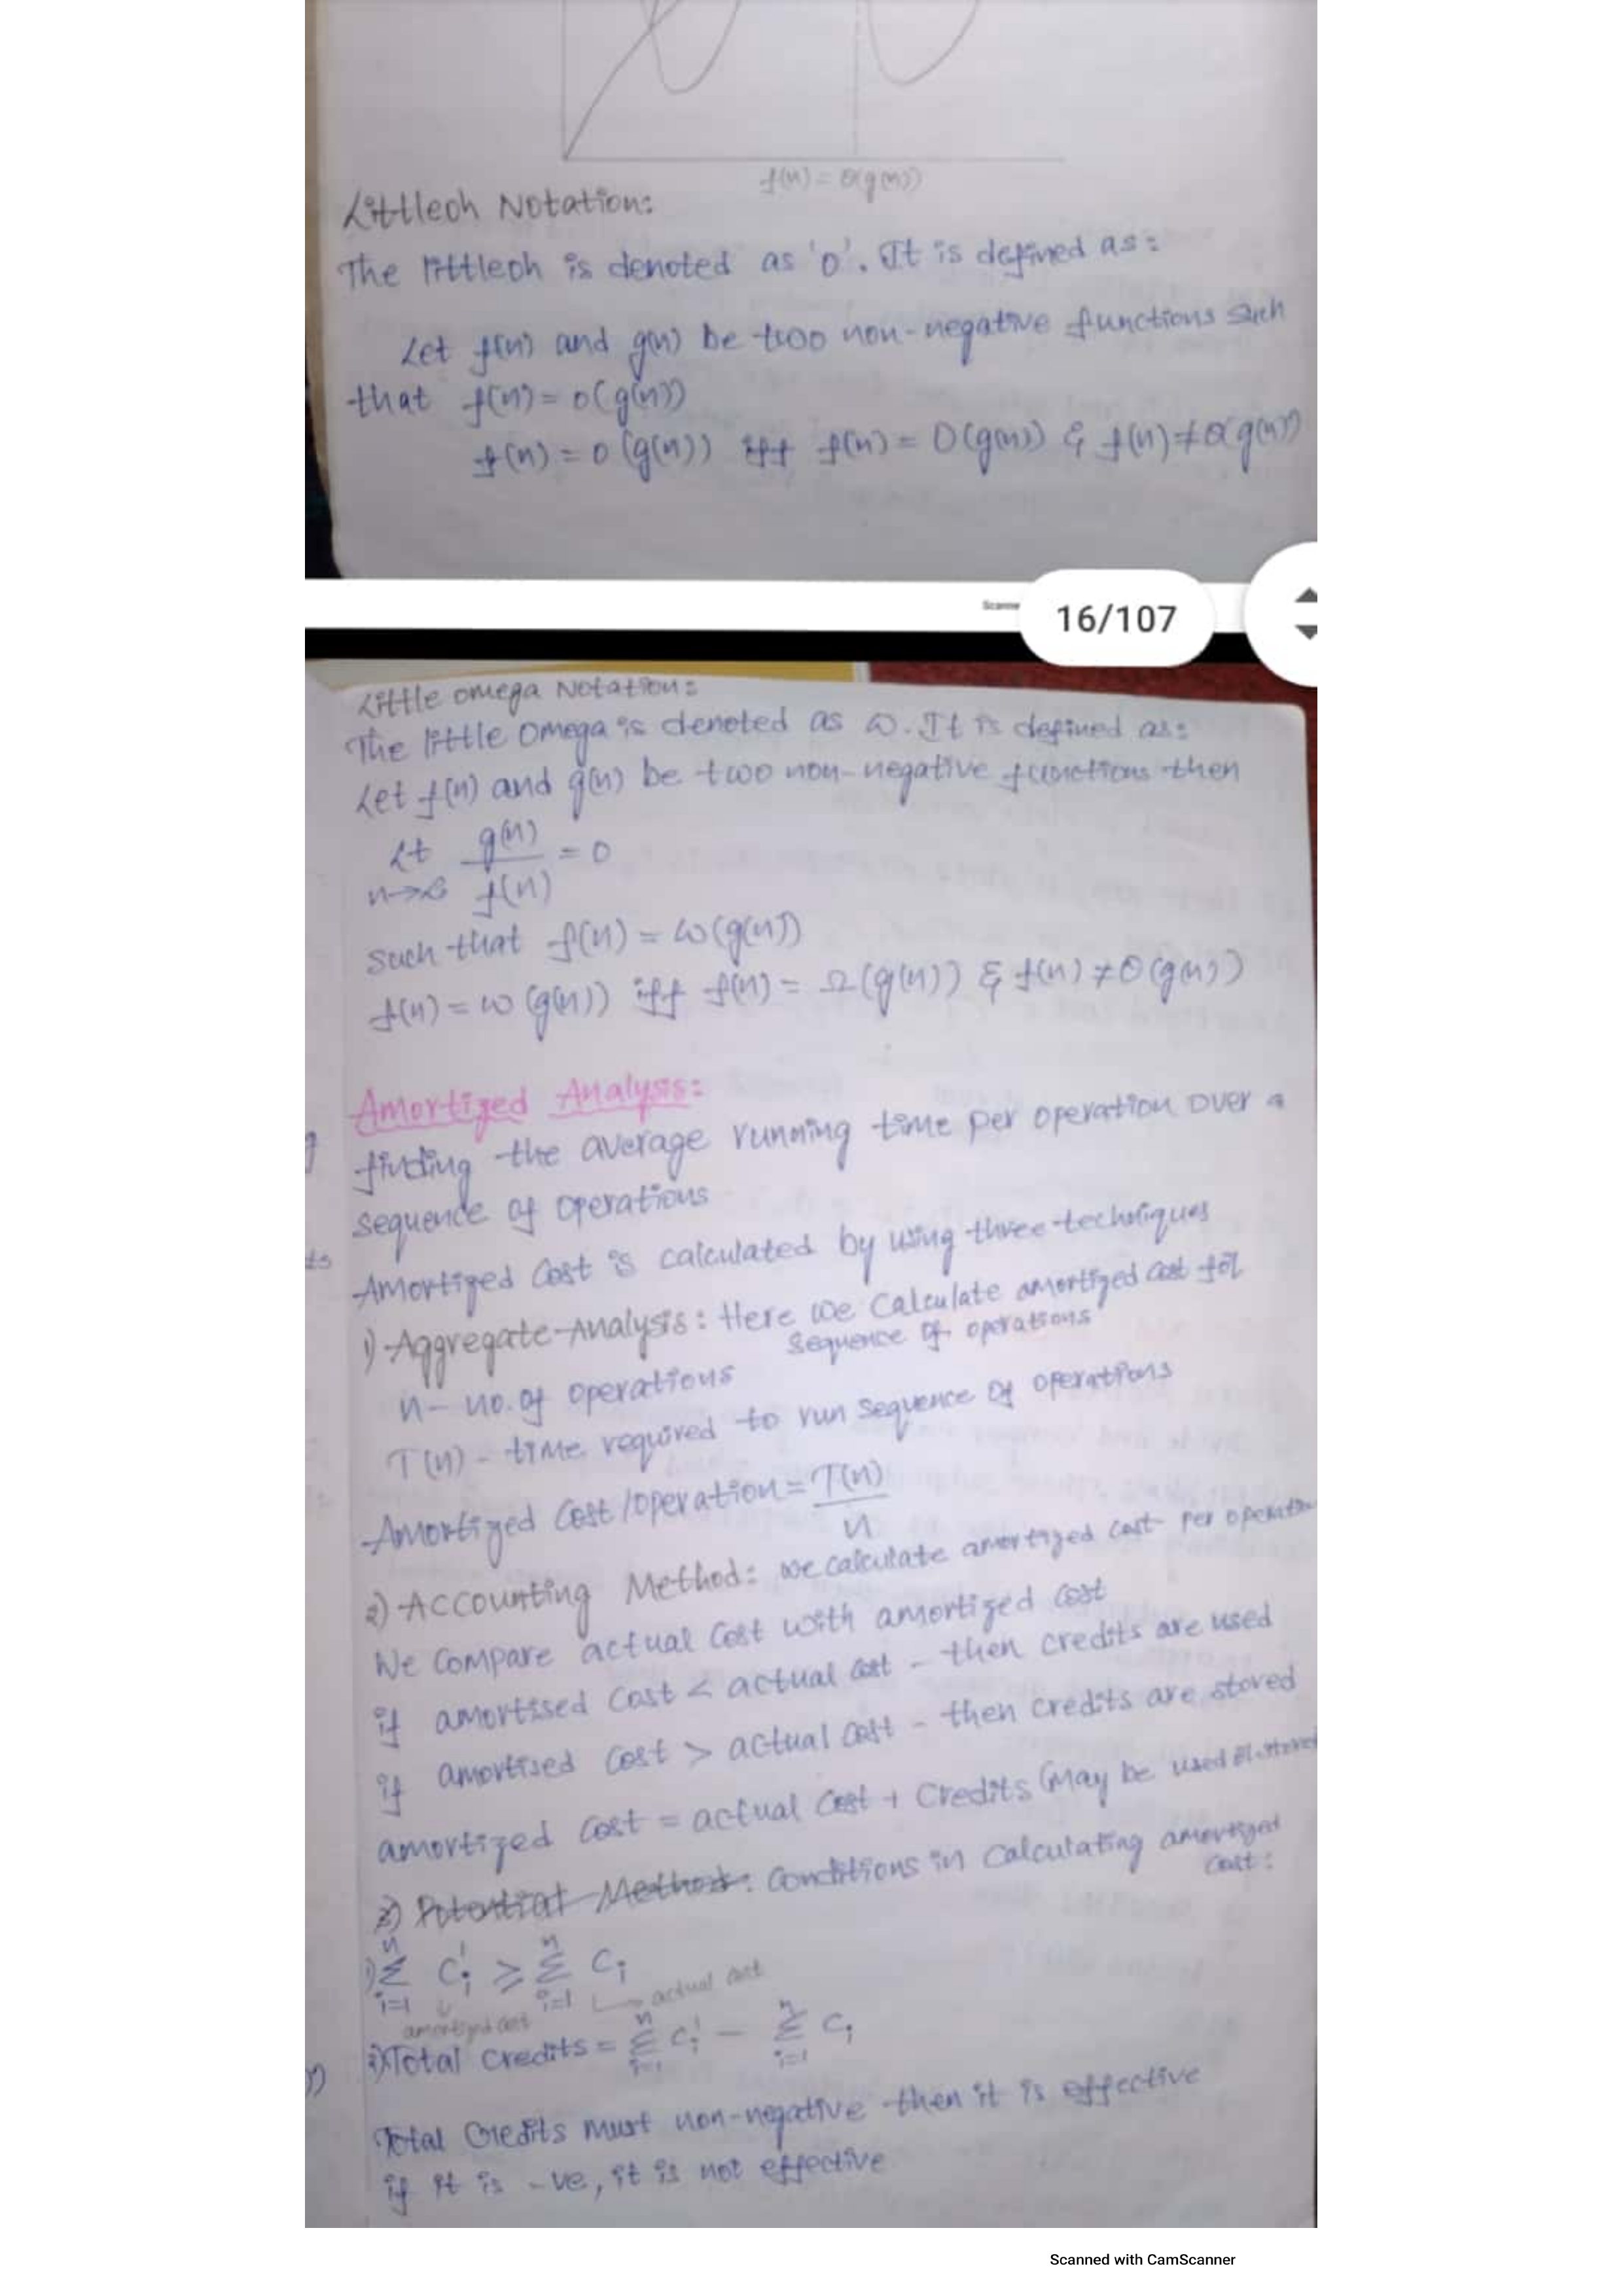 f(n) = θ(g(n))
Littleoh Notation:
The littleoh is denoted as 'o'. It is defined as:
Let f(n) and g(n) be two non-negative functions such
that f(n) = o(g(n))
f(n) = o(g(n)) iff f(n) = O(g(n)) & f(n) ≠ Θ(g(n))
16/107
Little omega Notation:
The little Omega is denoted as ω. It is defined as:
Let f(n) and g(n) be two non-negative functions then
Lt g(n)/f(n) = 0
n→∞
such that f(n) = ω(g(n))
f(n) = ω(g(n)) iff f(n) = Ω(g(n)) & f(n) ≠ Θ(g(n))
Amortized Analysis:
finding the average running time per operation over a
sequence of operations
Amortized Cost is calculated by using three techniques
1) Aggregate Analysis: Here we Calculate amortized cost for
sequence of operations
n - no. of operations
T(n) - time required to run sequence of operations
Amortized Cost/operation = T(n)/n
2) Accounting Method: we calculate amortized cost per operation
We Compare actual Cost with amortized cost
if amortised Cost < actual cost - then credits are used
if amortised cost > actual cost - then credits are stored
amortized cost = actual cost + credits (may be used or stored
3) Potential Method: Conditions in Calculating amortized
cost:
1) n∑i=1 Ci' ≥ n∑i=1 Ci
actual cost
amortized cost
2) Total Credits = n∑i=1 Ci' - n∑i=1 Ci
Total Credits must non-negative then it is effective
if it is -ve, it is not effective
Scanned with CamScanner